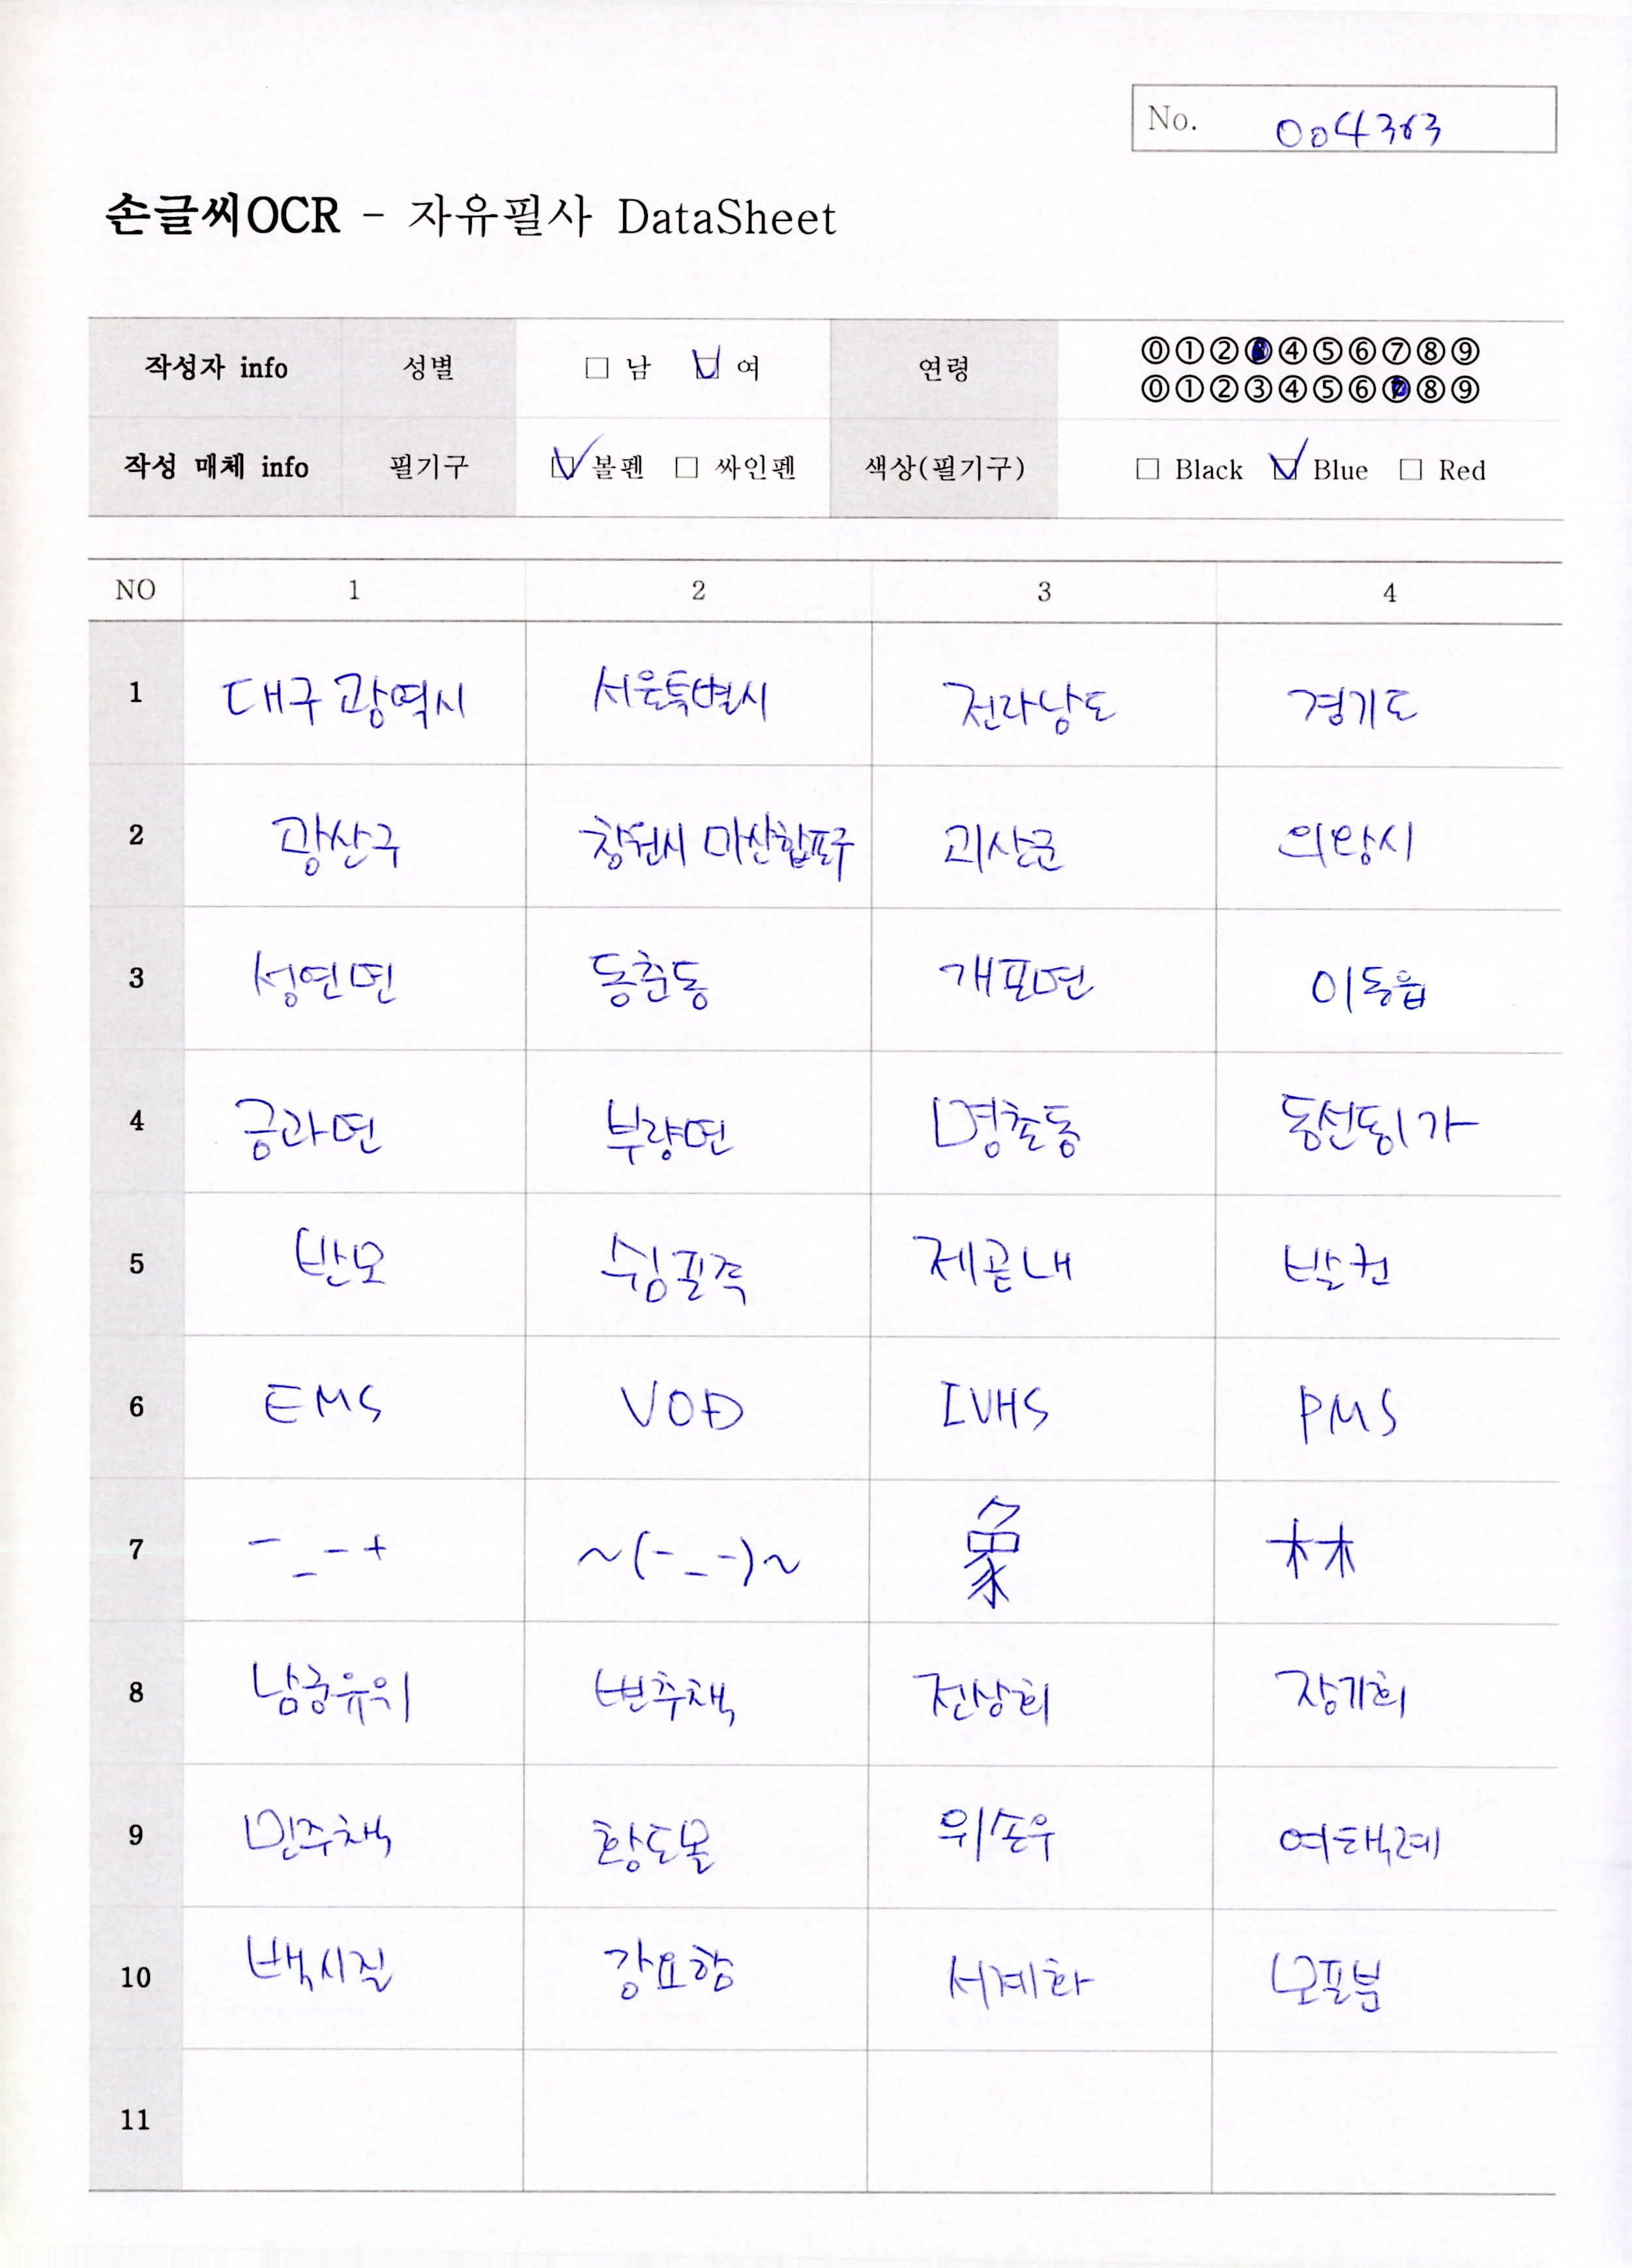 No. 004363
손글씨OCR - 자유필사 DataSheet
작성자 info 성별 □ 남 ☑ 여 연령 ⓪①②③④⑤⑥⑦⑧⑨
⓪①②③④⑤⑥⑦⑧⑨
작성 매체 info 필기구 ☑ 볼펜 □ 싸인펜 색상(필기구) □ Black ☑ Blue □ Red
NO 1 2 3 4
1 대구광역시 서울특별시 전라남도 경기도
2 광산구 창원시 마산합포구 괴산군 의왕시
3 성연면 동춘동 개포면 이동읍
4 금과면 부량면 명촌동 동선동1가
5 반모 쉼폴족 제곧내 발컨
6 EMS VOD IVHS PMS
7 -_-+ ~(-_-)~ 象 林
8 남궁유위 변주책 전상희 장기희
9 민주책 황도몰 위손우 여택례
10 백시질 강요항 서계화 모필붐
11